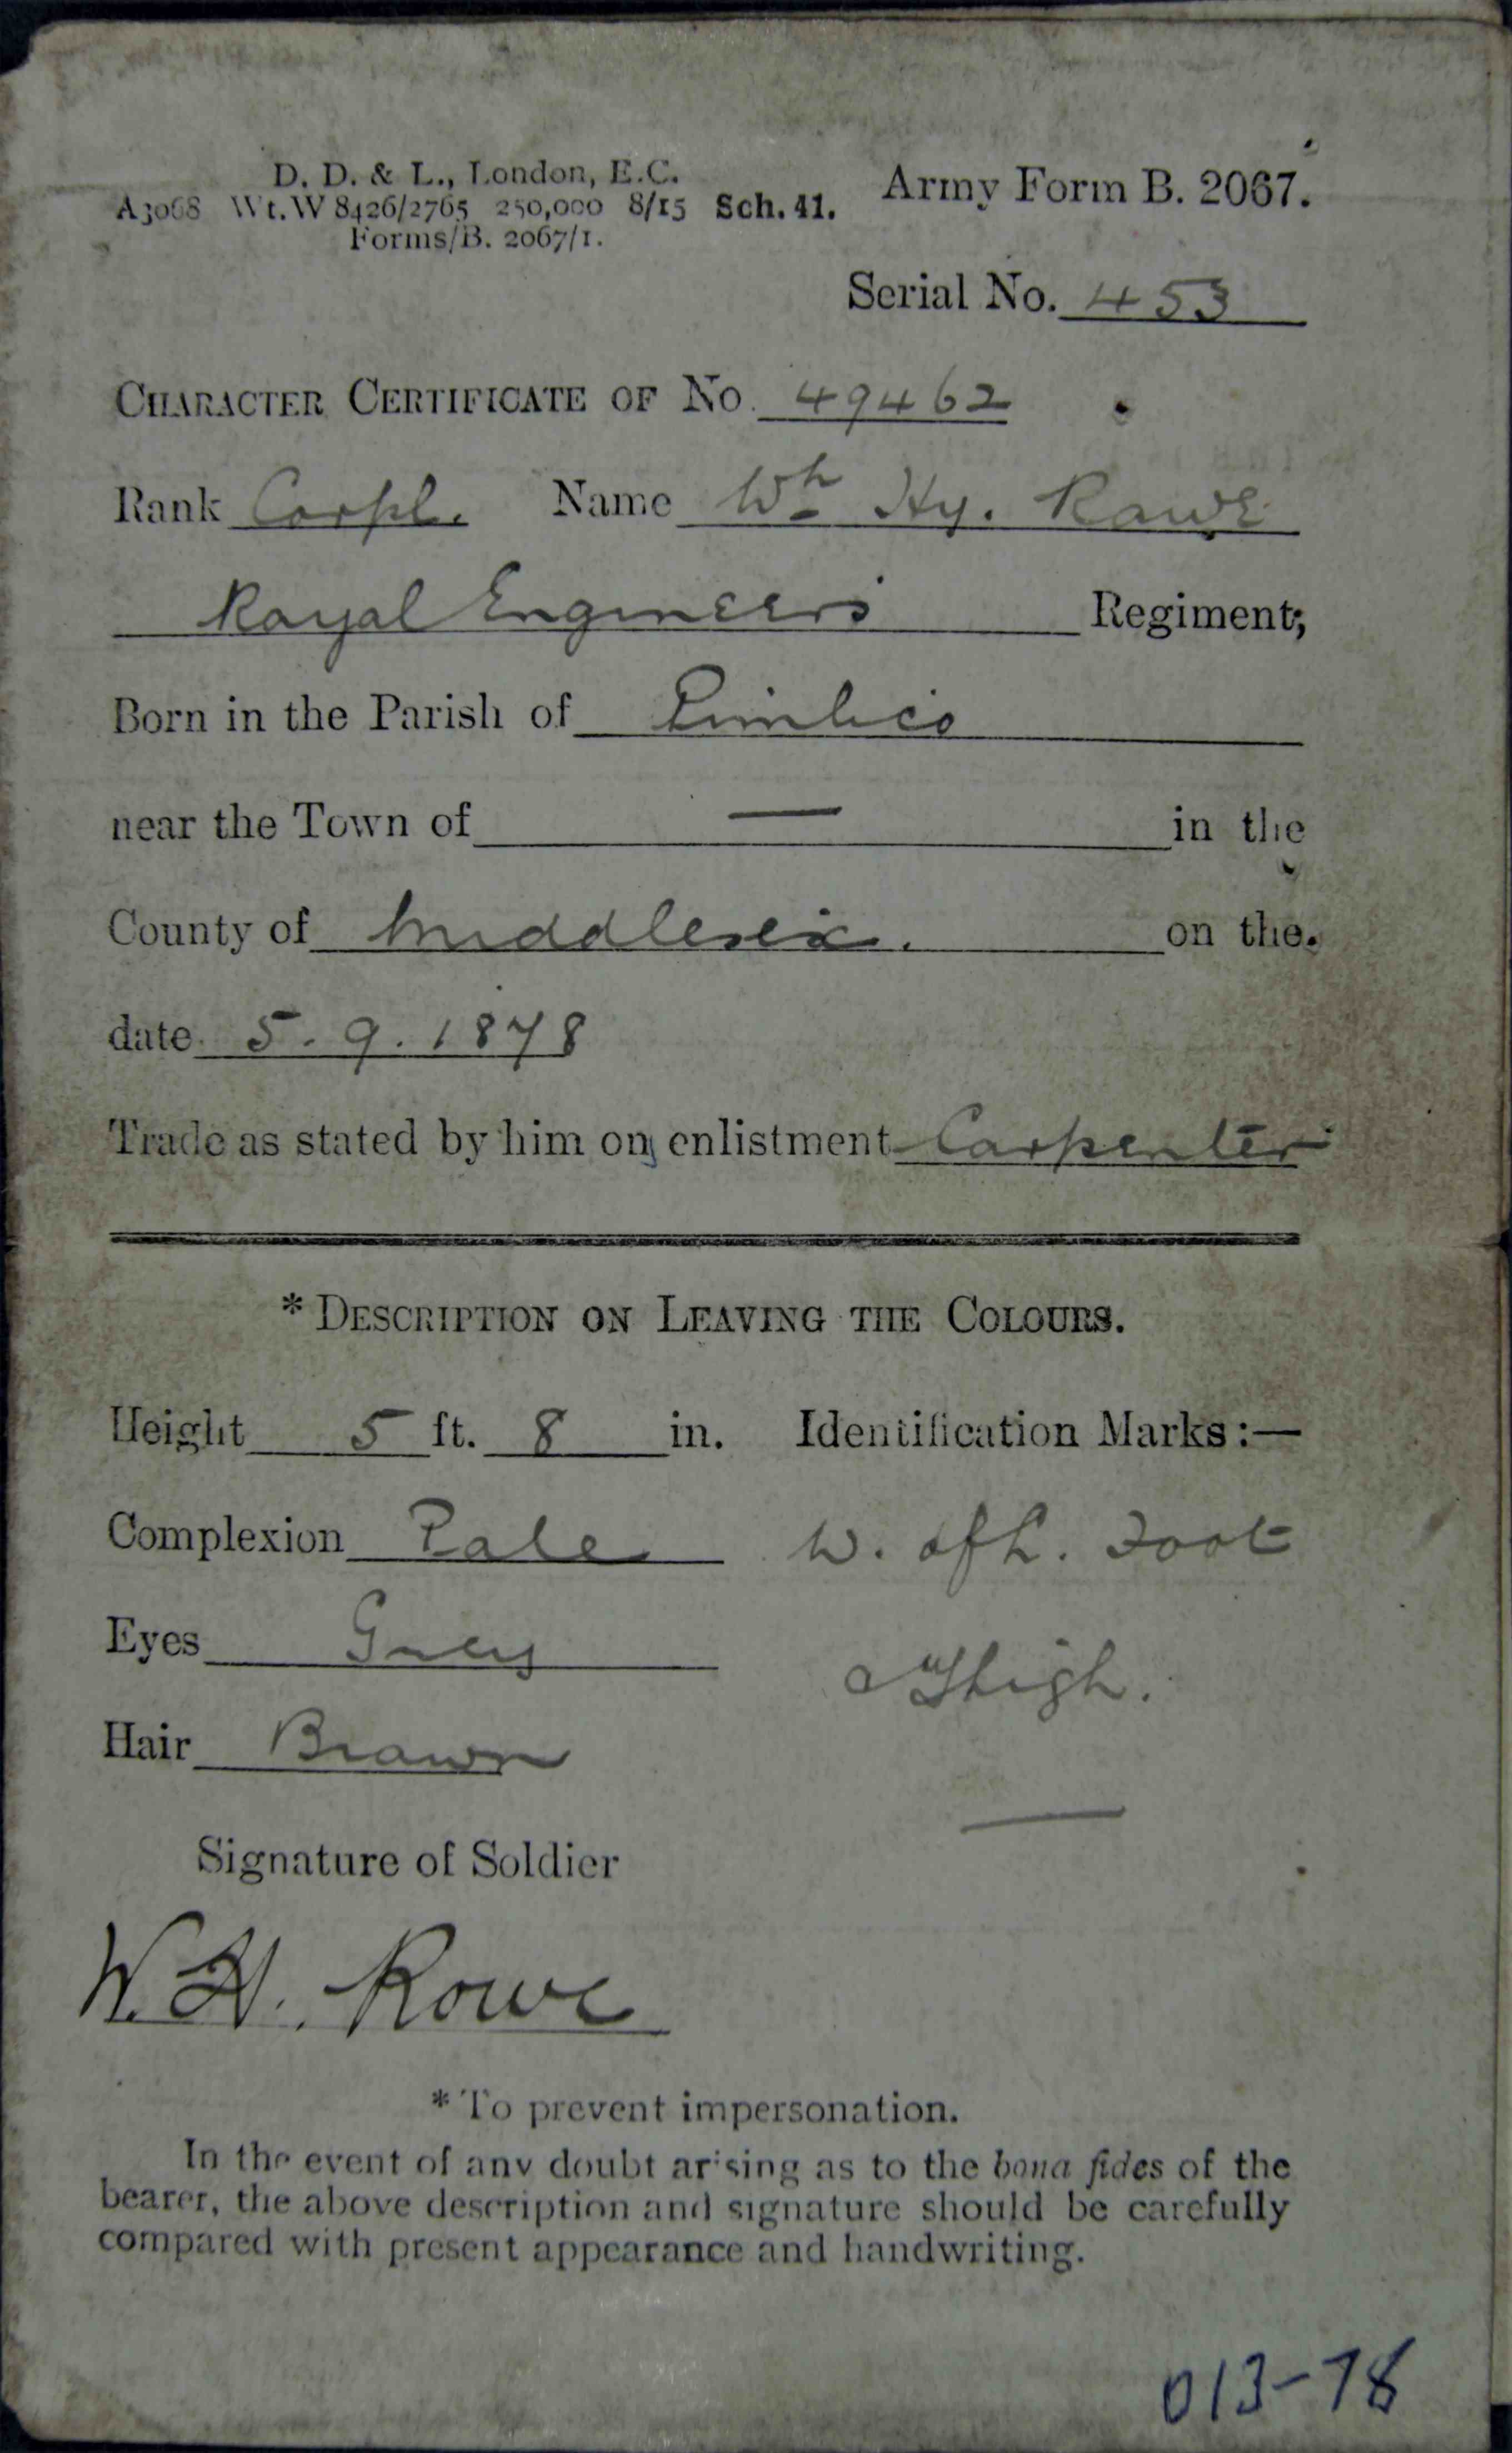 D. D. & L., London, E.C.
A3068 Wt. W 8426/2765 250,000 8/15 Sch. 41.
Forms/B. 2067/1.
Army Form B. 2067.
Serial No. 453
CHARACTER CERTIFICATE OF No. 49462
Rank Corpl. Name Wm Hy. Rowe
Royal Engineers Regiment;
Born in the Parish of Pimlico
near the Town of — in the
County of Middlesex. on the.
date 5.9.1878
Trade as stated by him on enlistment Carpenter
* DESCRIPTION ON LEAVING THE COLOURS.
Height 5 ft. 8 in. Identification Marks :—
Complexion Pale W. of L. Foot
Eyes Grey & Thigh.
Hair Brown
Signature of Soldier
W. H. Rowe
* To prevent impersonation.
In the event of any doubt arising as to the bona fides of the
bearer, the above description and signature should be carefully
compared with present appearance and handwriting.
013-78